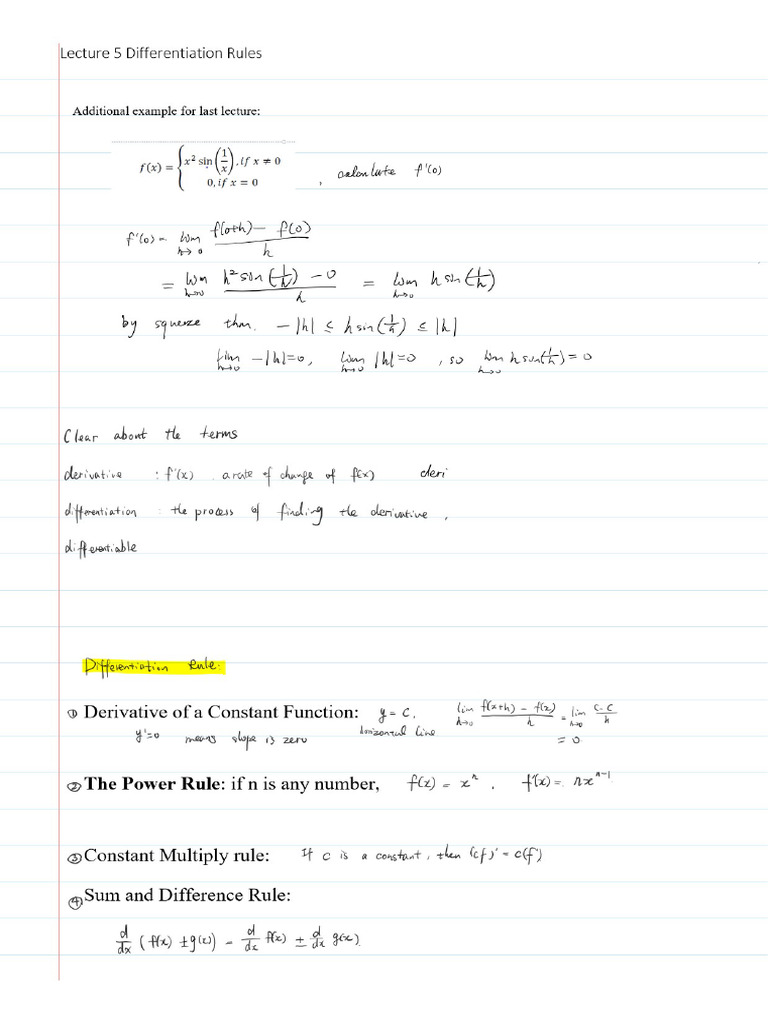 Lecture 5 Differentiation Rules
Additional example for last lecture:
f(x) = { x² sin(1/x), if x ≠ 0
0, if x = 0 , calculate f'(0)
f'(0) = lim h→0 (f(0+h) − f(0))/h
= lim h→0 (h² sin(1/h) − 0)/h = lim h→0 h sin(1/h)
by squeeze thm. −|h| ≤ h sin(1/h) ≤ |h|
lim h→0 −|h| = 0, lim h→0 |h| = 0, so lim h→0 h sin(1/h) = 0
Clear about the terms
derivative : f'(x) . a rate of change of f(x) deri
differentiation : the process of finding the derivative,
differentiable
Differentiation Rule:
① Derivative of a Constant Function: y = C, lim h→0 (f(x+h) − f(x))/h = lim h→0 (C − C)/h
y'=0 means slope is zero horizontal line = 0
② The Power Rule: if n is any number, f(x) = xⁿ, f'(x) = nxⁿ⁻¹
③ Constant Multiply rule: If c is a constant, then (cf)' = c(f')
④ Sum and Difference Rule:
d/dx (f(x) ± g(x)) = d/dx f(x) ± d/dx g(x)